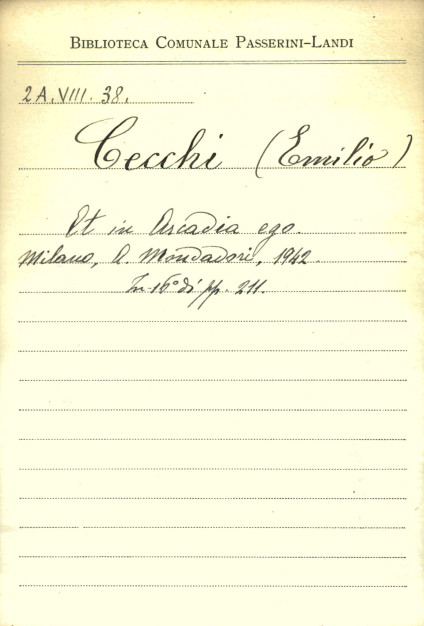 BIBLIOTECA COMUNALE PASSERINI-LANDI
2 A. VIII. 38.
Cecchi (Emilio)
Et in Arcadia ego.
Milano, A. Mondadori, 1942.
In 16° di pp. 211.